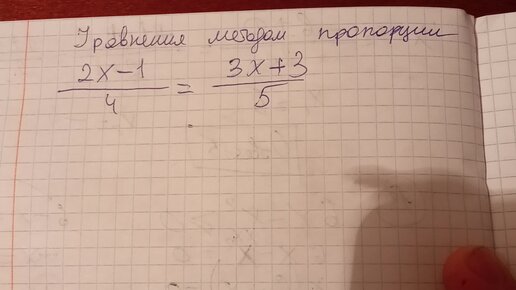 Уравнения методом пропорции
2x-1 = 3x+3
4 5